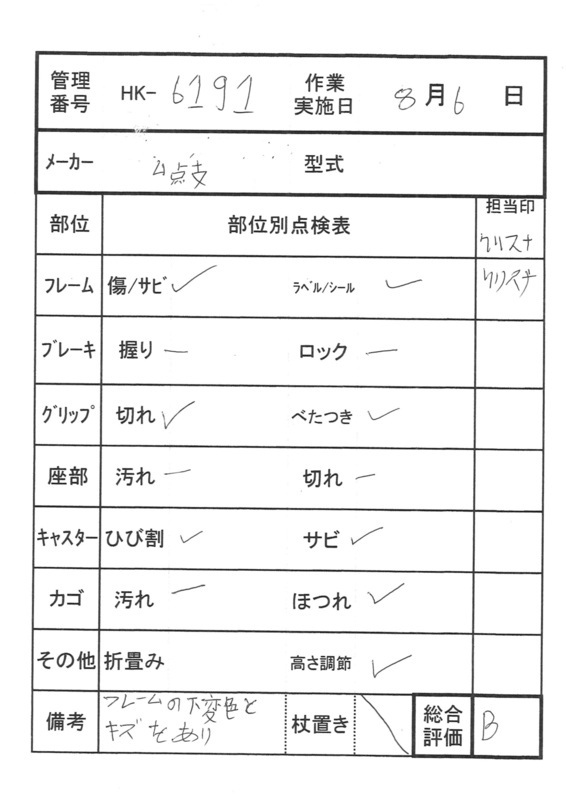 管理番号 HK- 6191 作業実施日 8月6日
メーカー 4点支 型式
部位 部位別点検表 担当印 クリスナ
フレーム 傷/サビ ✓ ラベル/シール ✓ クリスナ
ブレーキ 握り — ロック —
グリップ 切れ ✓ べたつき ✓
座部 汚れ — 切れ —
キャスター ひび割 ✓ サビ ✓
カゴ 汚れ — ほつれ ✓
その他 折畳み 高さ調節 ✓
備考 フレームの下変色と 杖置き 総合評価 B
キズをあり